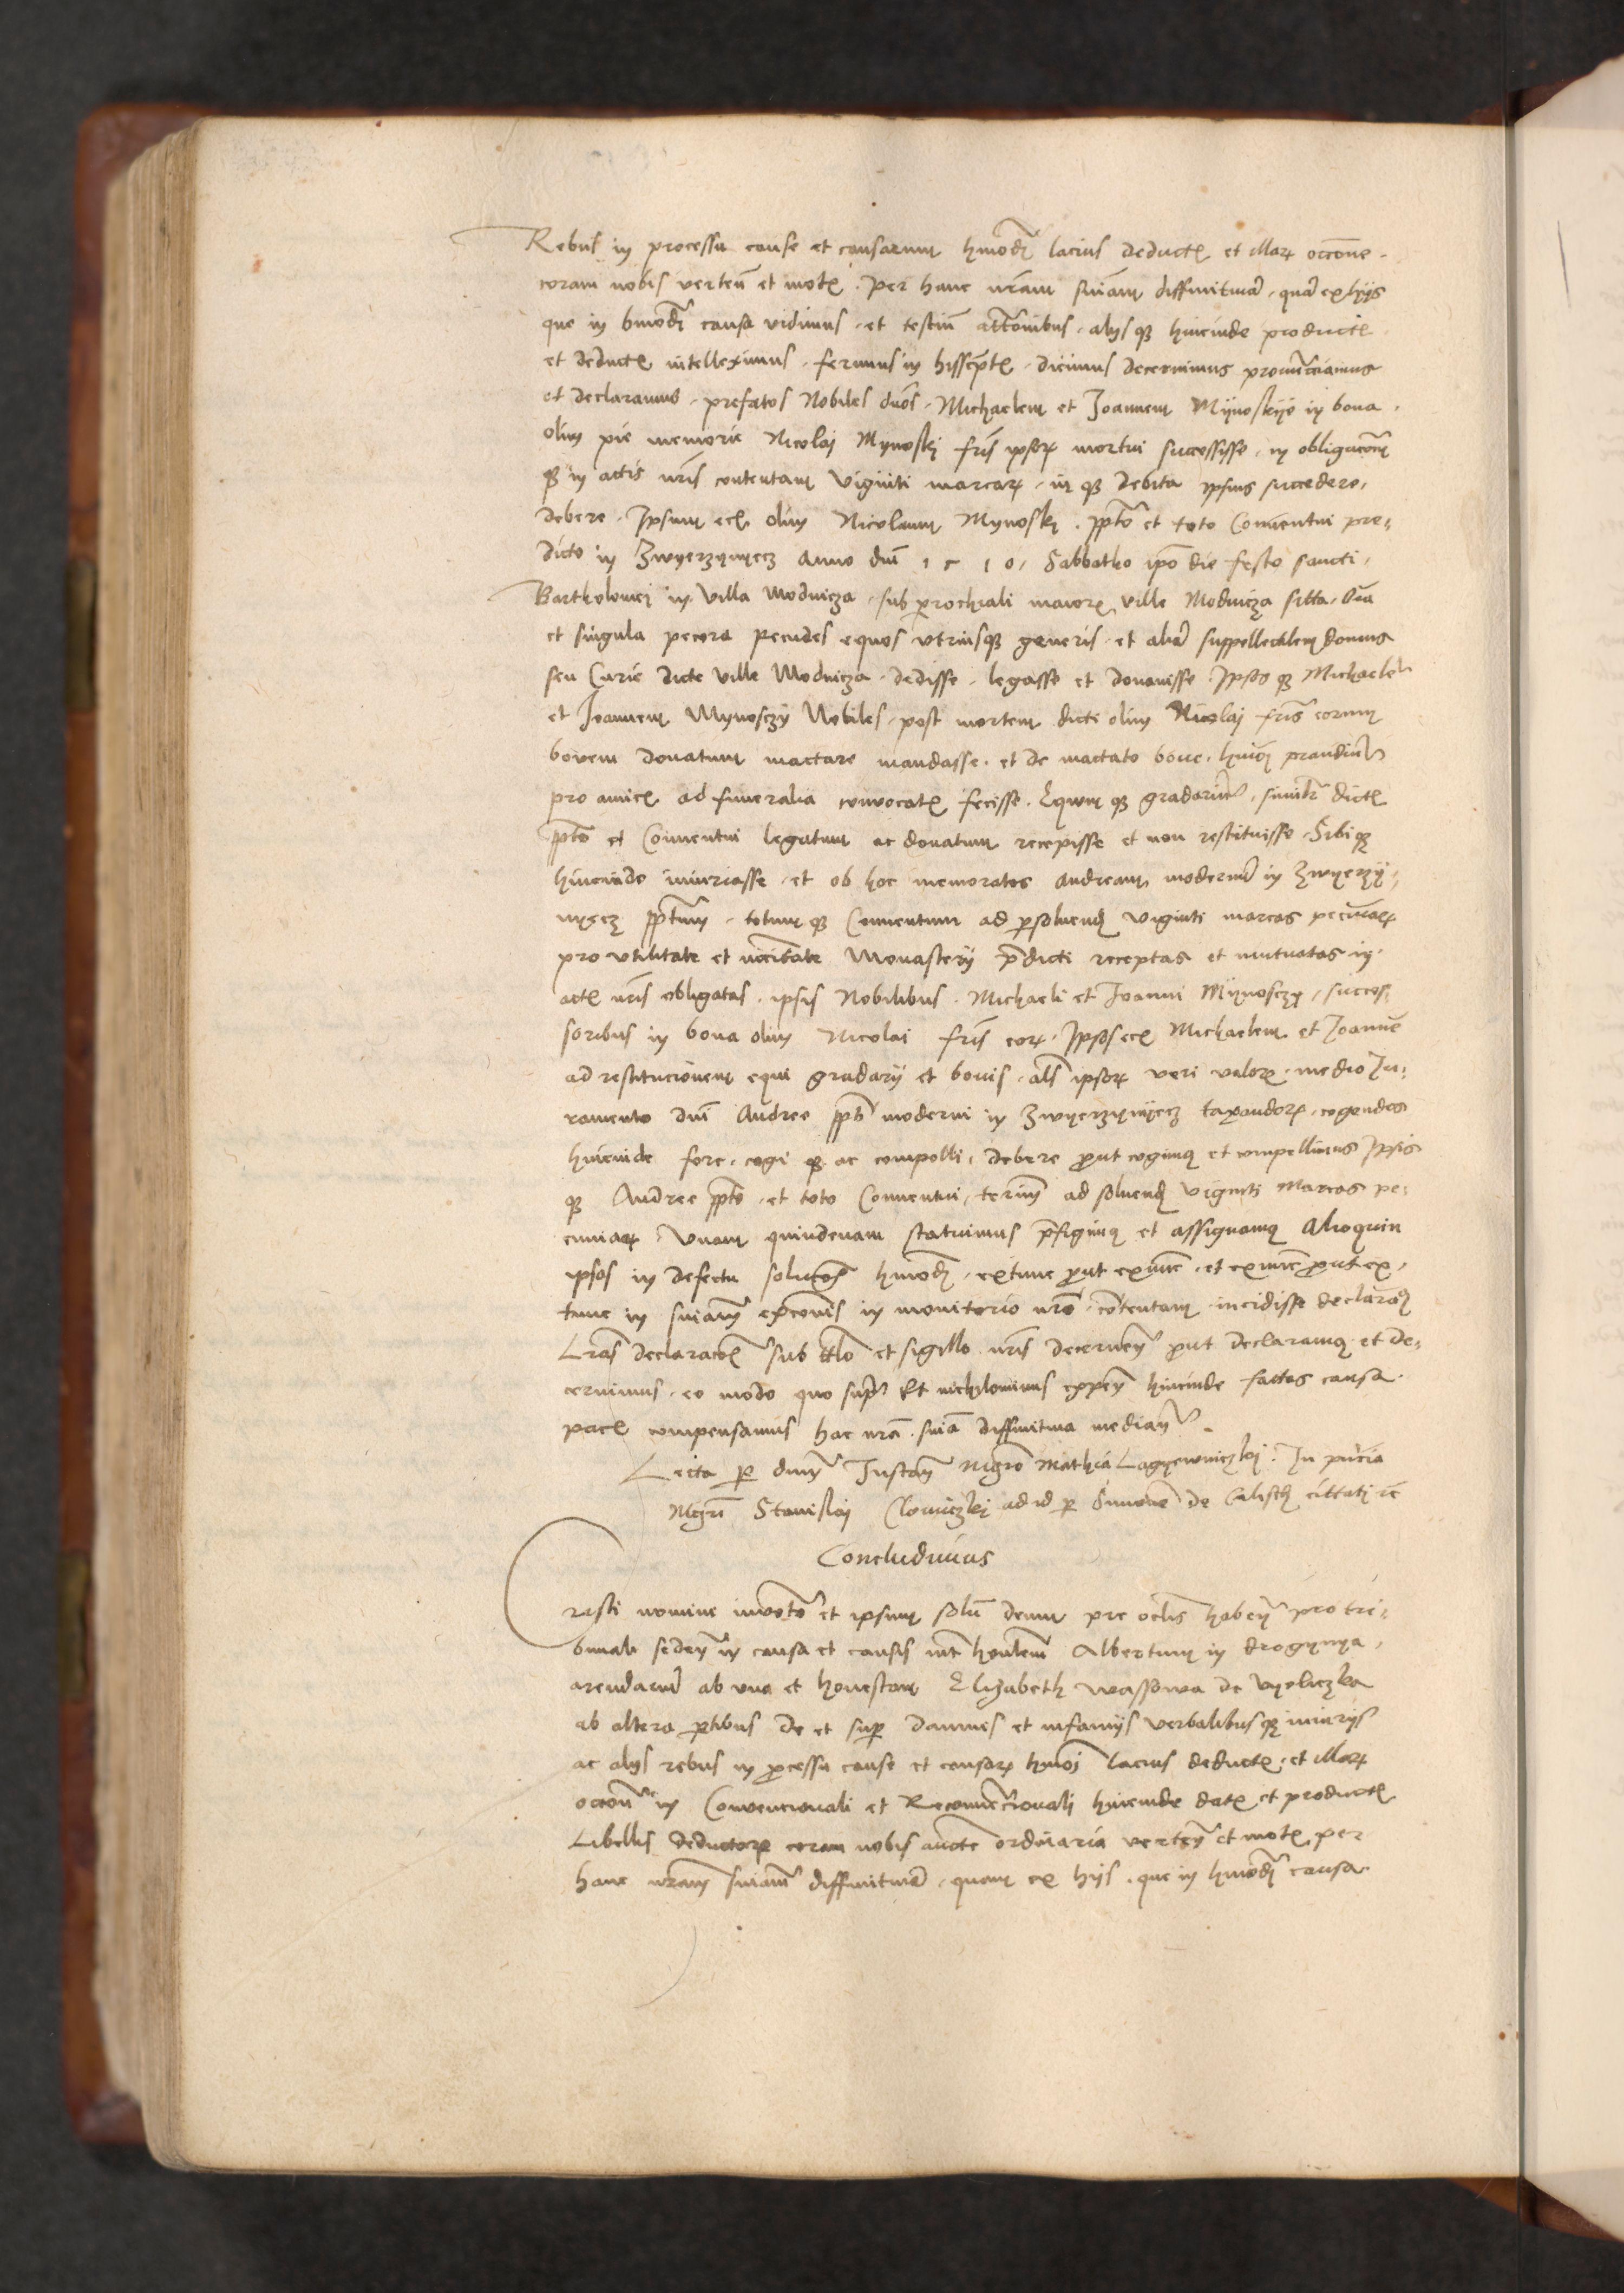 Rebus in processu cause et causarum hmodi lacius deductis et illarum occone
coram nobis verten et motis . Per hanc nram sniam diffinitivam . quam ex hijs
que in hmodi causa vidimus . et testium attconibus . alijsque hincinde productis
et deductis intelleximus . ferimus in hisscriptis . dicimus decernimus pronuncciamus
et declaramus . prefatos Nobiles duos . Michaelem et Joannem Mijnoskije in bona .
olim pie memorie Nicolaj Mynoskj fris ipsorum mortui successisse . in obligaconem
que in actis nris contentam viginti marcarum . in que debita ipsius succedere ,
debere . Ipsum eciam olim Nicolaum Mynoskj . ppto et toto Conventui pre,
dicto in Zwyerzynyecz Anno dni 1 5 1 0 , Sabbatho ipso die festo sancti ,
Bartholomei in villa Modnicza . sub parochiali maioris ville Modnicza sitta . Oia
et singula pecora pecudes equos utriusque generis . et aliam suppellectilem domus
seu Curie dicte ville Modnicza . dedisse . legasse et donauisse . Ipsos que Michaelem
et Joannem Mynosczy Nobiles . post mortem dicti olim Nicolaj fris eorum
bovem donatum mactare mandasse . et de mactato boue . hmoi prandium
pro amicis ad funeralia convocatis fecisse . Equm que gradarium . similiter dictis
ppto et Conventui legatum ac donatum recepisse et non restituisse . Sibique
hincinde iniuriasse . et ob hoc memoratos Andream modernum in Zwyerzy,,
nyecz ppitum . totumque Conventum ad persoluendum viginti marcas pecuniarum
pro utilitate et necitate Monasterij predicti receptas et mutuatas in
actis nris obligatas . ipsis Nobilibus . Michaeli et Joanni Mijnosczy , succes,
soribus in bona olim Nicolai fris eorum . Ipsos eciam Michaelem et Joannem
ad restitucionem equi gradarij et bovis . als ipsorum veri valoris . medio Ju,
ramento dni Andree ppti moderni in Zwyerzynyecz taxandorum . cogendos
hincinde fore . cogi que ac compelli , debere prout cogimus et compellimus Ipsis
que Andree ppto . et toto Conventui , terminum ad soluendum viginti Marcas pe,
cuniarum . Unam quindenam statuimus prefigimus et assignamus Alioquin
ipsos in defectu solucois hmodi . extunc prout exnunc . et exnunc prout ex,
tunc in sniam exconis in monitorio nro . contentam . incidisse declarandum
Lras declaracois sub titulo et sigillo nris decernen prout declaramus . et de,
cernimus . eo modo quo supra Et nichilominus expen hincinde factas causa
pacis compensamus hac nra . snia diffinitiva median .
Lecta per dnum Instan Mgro Mathia Lagyewniczkj . In pntia
Mgri Stanislaj Slomczkj ad id per Simone de Calisch cittati etc
Concludimus
Cristi nomine invocto et ipsum solum deum pre oclis haben pro tri,
bunali seden in causa et causis int honlem Albertum in drogynya ,
arendarium ab una et honestam Elizabeth Wassowa de Vyeliczka
ab altera partibus de et super damnis et infamijs verbalibusque iniurijs
ac alijs rebus in processu cause et causarum hmoi lacius deductis . et illarum
occone in Convencionali et Reconvencionali hincinde datis et productis
Libellis deductorum coram nobis aucte ordinaria verten et motis per
hanc nram sniam diffinitivam . quam ex hijs . que in hmodi causa